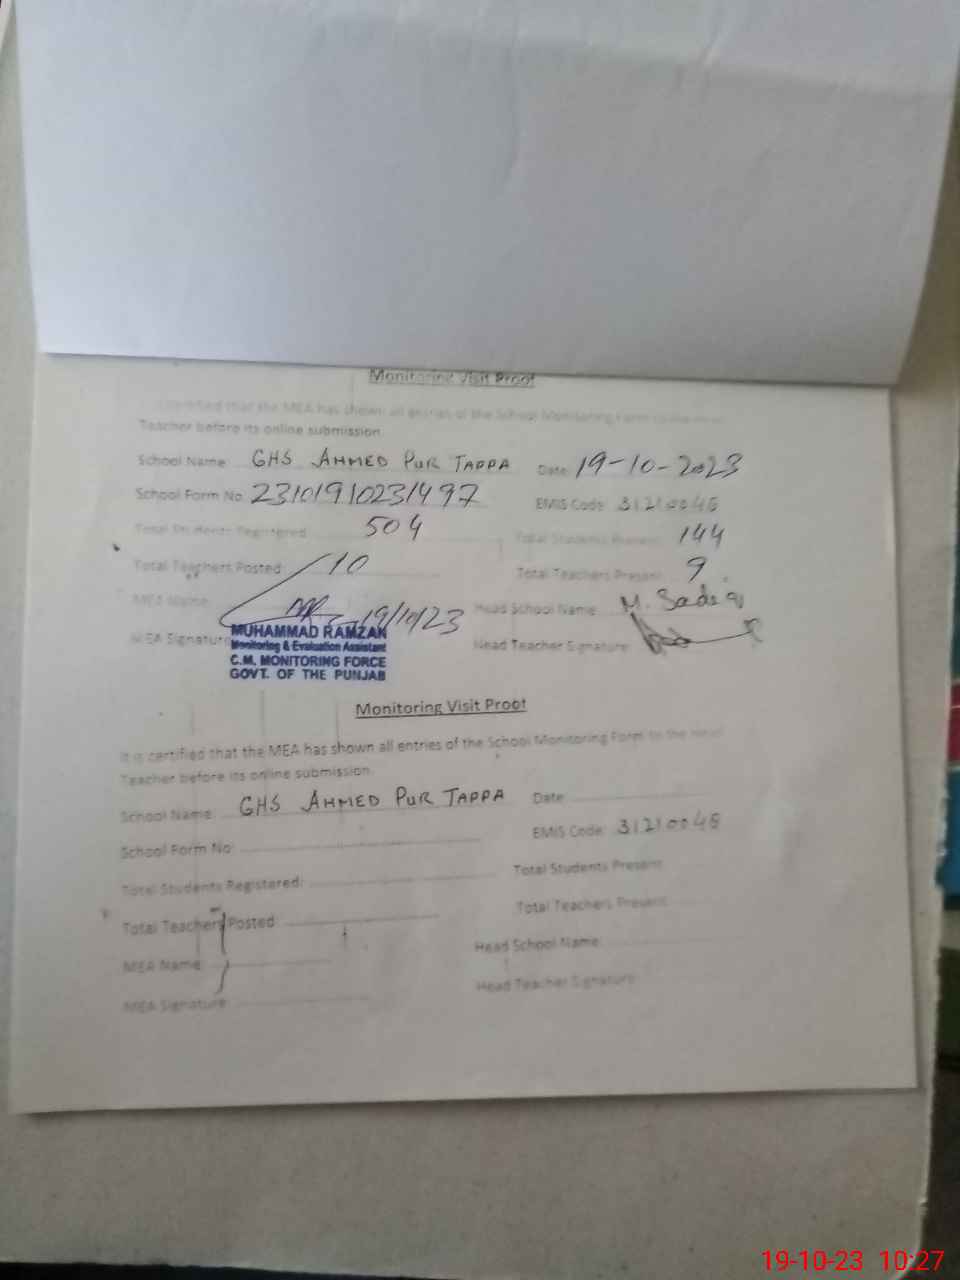 Monitoring Visit Proof
certified that the MEA has shown all entries of the School Monitoring Form to the Head
Teacher before its online submission.
School Name: GHS AHMED PUR TAPPA Date: 19-10-2023
School Form No: 23101910231497 EMIS Code: 31210048
Total Students Registered: 504 Total Students Present: 144
Total Teachers Posted: 10 Total Teachers Present: 9
MEA Name: 19/10/23 Head School Name: M. Sadiq
MEA Signature Head Teacher Signature:
MUHAMMAD RAMZAN
Monitoring & Evaluation Assistant
C.M. MONITORING FORCE
GOVT. OF THE PUNJAB
Monitoring Visit Proof
It is certified that the MEA has shown all entries of the School Monitoring Form to the Head
Teacher before its online submission.
School Name: GHS AHMED PUR TAPPA Date:
School Form No: EMIS Code: 31210048
Total Students Registered: Total Students Present:
Total Teachers Posted: Total Teachers Present:
MEA Name: Head School Name:
MEA Signature: Head Teacher Signature:
19-10-23 10:27